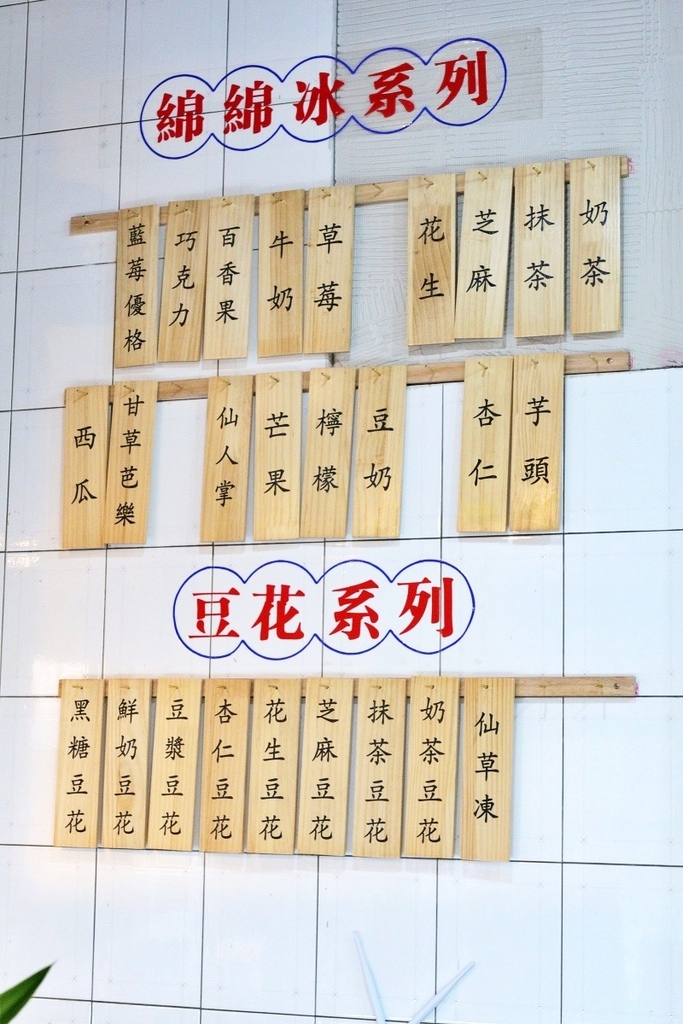 綿綿冰系列
藍莓優格
巧克力
百香果
牛奶
草莓
花生
芝麻
抹茶
奶茶
西瓜
甘草芭樂
仙人掌
芒果
檸檬
豆奶
杏仁
芋頭
豆花系列
黑糖豆花
鮮奶豆花
豆漿豆花
杏仁豆花
花生豆花
芝麻豆花
抹茶豆花
奶茶豆花
仙草凍